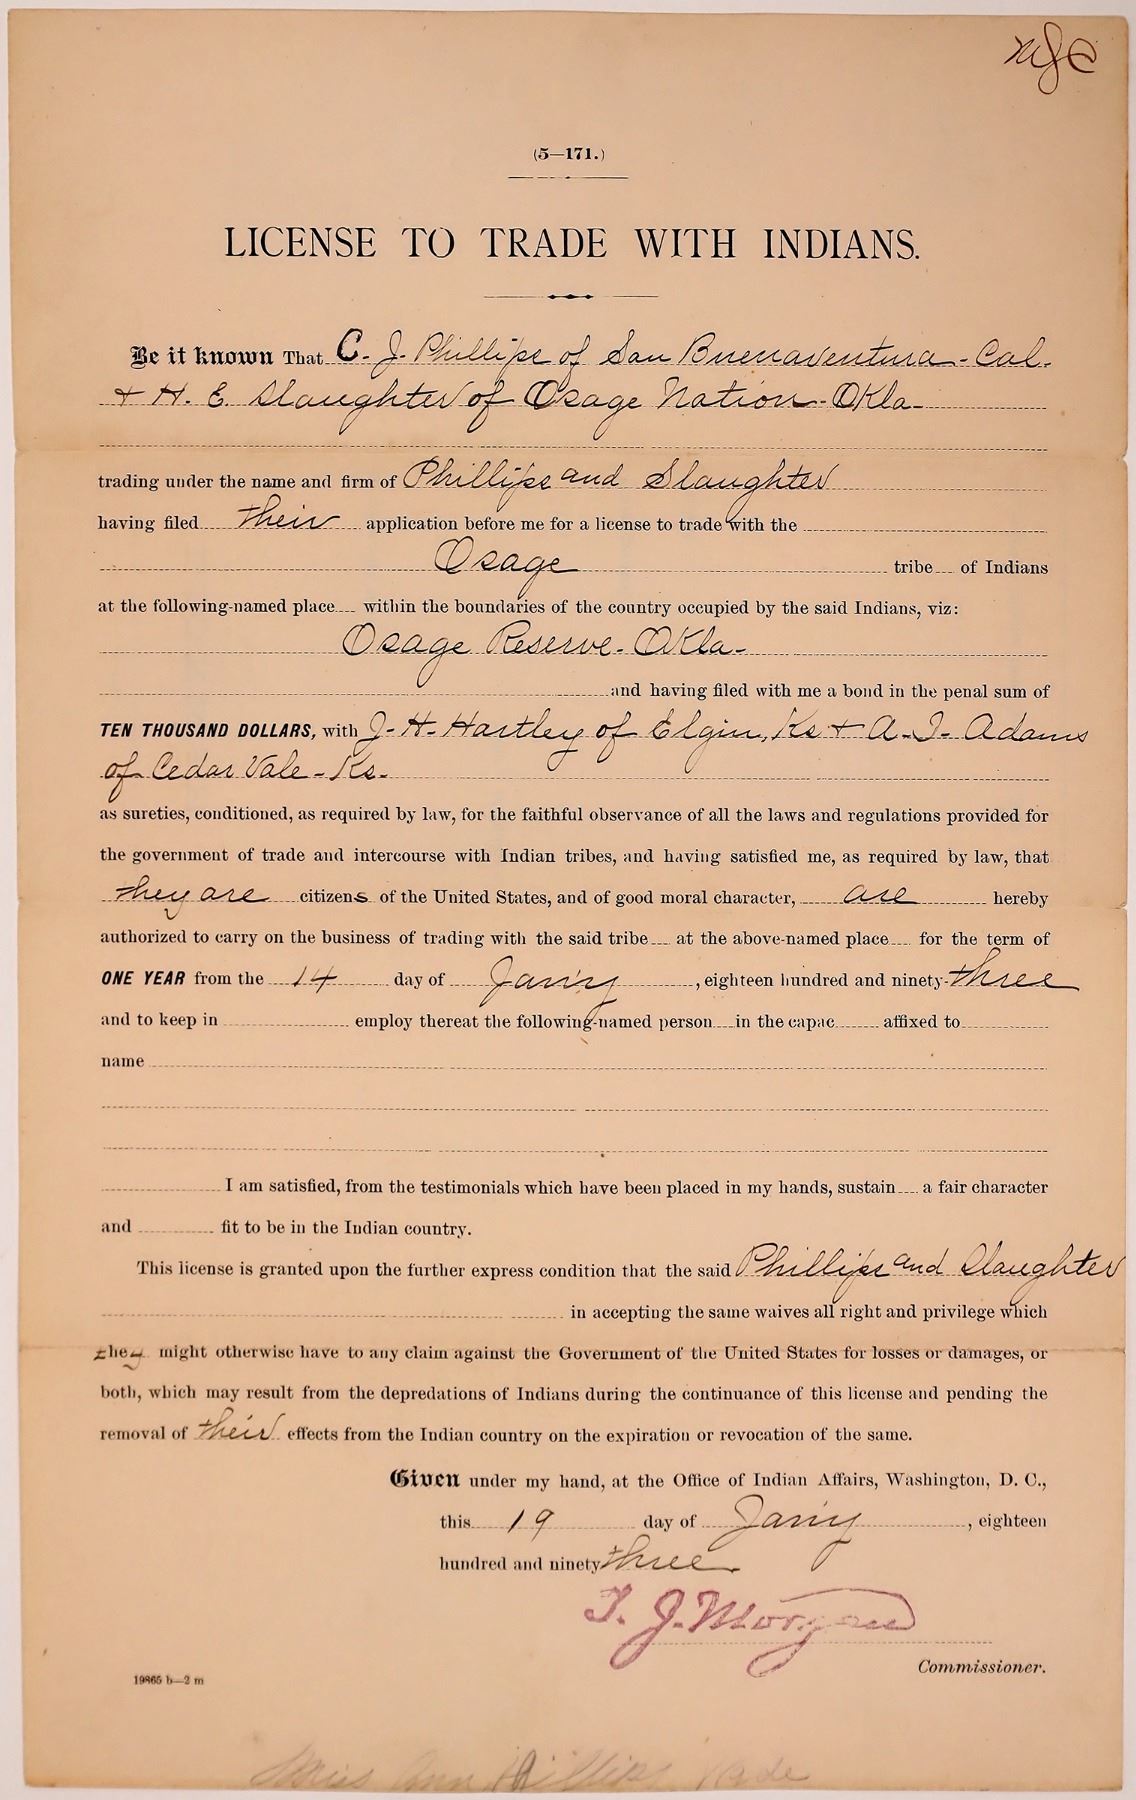 (5—171.)
LICENSE TO TRADE WITH INDIANS.
Be it known That C. J. Phillips of San Buenaventura - Cal.
+ H. E. Slaughter of Osage Nation - Okla -
trading under the name and firm of Phillips and Slaughter
having filed their application before me for a license to trade with the
Osage tribe of Indians
at the following-named place within the boundaries of the country occupied by the said Indians, viz:
Osage Reserve - Okla -
and having filed with me a bond in the penal sum of
TEN THOUSAND DOLLARS, with J. H. Hartley of Elgin, Ks + A. J. Adams
of Cedar Vale - Ks.
as sureties, conditioned, as required by law, for the faithful observance of all the laws and regulations provided for
the government of trade and intercourse with Indian tribes, and having satisfied me, as required by law, that
they are citizens of the United States, and of good moral character, are hereby
authorized to carry on the business of trading with the said tribe at the above-named place for the term of
ONE YEAR from the 14 day of Jan'y, eighteen hundred and ninety-three
and to keep in employ thereat the following-named person in the capac affixed to
name
I am satisfied, from the testimonials which have been placed in my hands, sustain a fair character
and fit to be in the Indian country.
This license is granted upon the further express condition that the said Phillips and Slaughter
in accepting the same waives all right and privilege which
they might otherwise have to any claim against the Government of the United States for losses or damages, or
both, which may result from the depredations of Indians during the continuance of this license and pending the
removal of their effects from the Indian country on the expiration or revocation of the same.
Given under my hand, at the Office of Indian Affairs, Washington, D. C.,
this 19 day of Jan'y, eighteen
hundred and ninety three.
T. J. Morgan
Commissioner.
19865 b—2 m
Ann Phillips